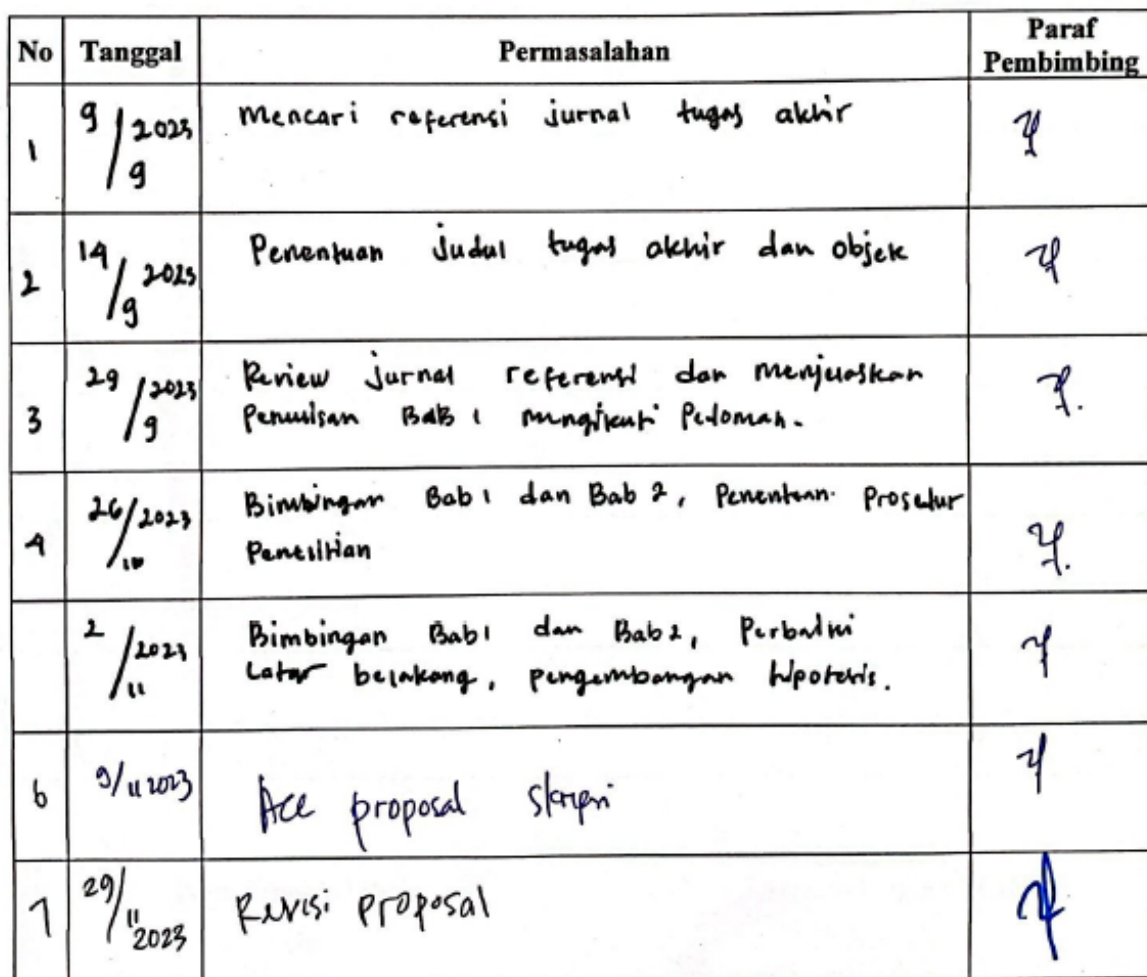 No Tanggal Permasalahan Paraf Pembimbing
1 9/9 2023 Mencari referensi jurnal tugas akhir
2 14/9 2023 Penentuan Judul tugas akhir dan objek
3 29/9 2023 Review Jurnal referensi dan menjelaskan
Penulisan BAB 1 mengikuti Pedoman.
4 26/10 2023 Bimbingan Bab 1 dan Bab 2, Penentuan Prosedur
Penelitian
2/11 2023 Bimbingan Bab 1 dan Bab 2, Perbaiki
Latar belakang, pengembangan hipotesis.
6 9/11 2023 Acc proposal skripsi
7 29/11 2023 Revisi proposal